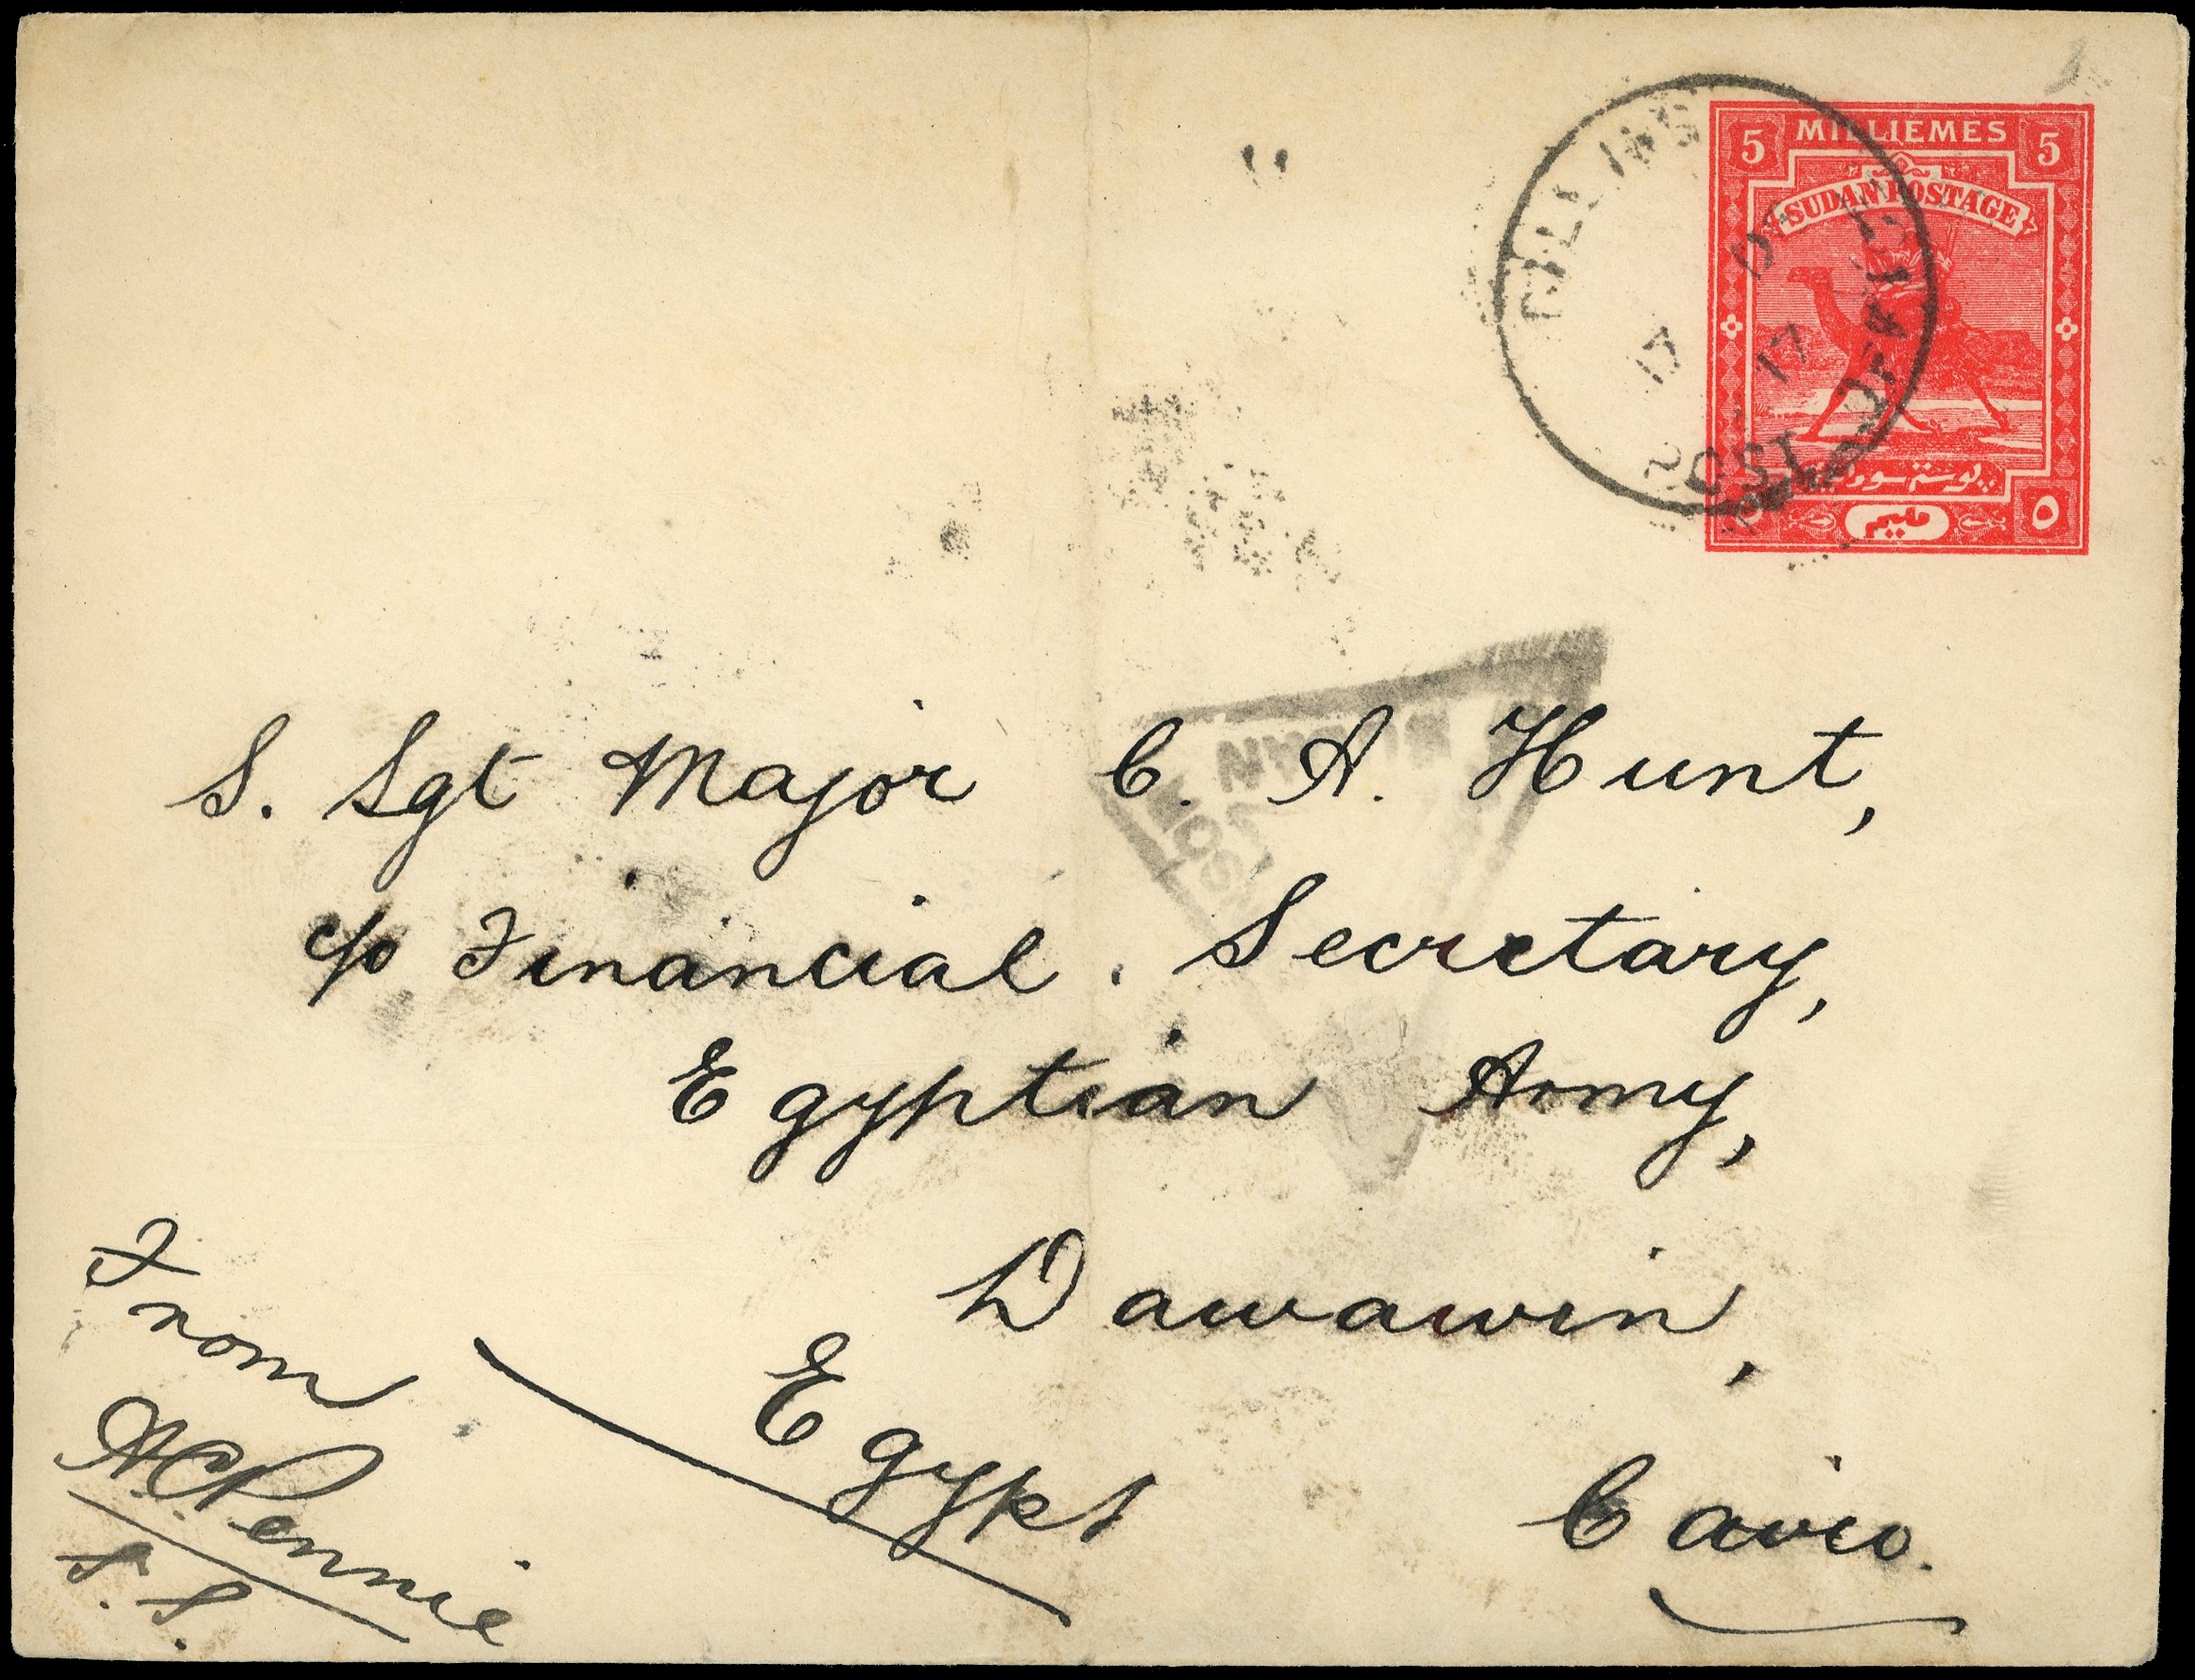 5 MILLIEMES 5
SUDAN POSTAGE
بوستة سودانية
مليم ٥
17
17
POST OFFICE
SUDAN
S. Sgt Major C. A. Hunt,
c/o Financial Secretary,
Egyptian Army,
Dawawin,
Egypt Cairo.
From
A C Pennie
S. S.